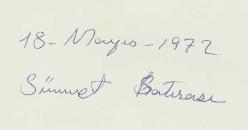 18- Mayıs - 1972
Sünnet Hatırası